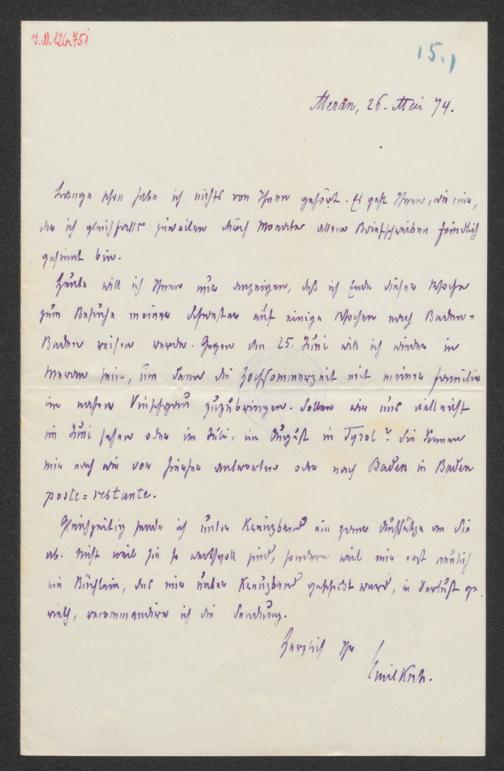 I.N. 126.751
15.,
Meran, 26. Mai 74.
Lange schon habe ich nichts von Ihnen gehört. Es geht Ihnen, wie mir,
der ich gleichfalls zuweilen durch Monate allem Briefschreiben feindlich
gesinnt bin.
Heute will ich Ihnen nur anzeigen, daß ich Ende dieser Woche
zum Besuche meiner Schwester auf einige Wochen nach Baden=
Baden reisen werde. Gegen den 25. Juni will ich wieder in
Meran sein, um dann die Hochsommerzeit mit meiner Familie
im nahen Vinschgau zuzubringen. Sollen wir uns vielleicht
im Juni sehen oder im Juli, im August in Tyrol? Sie können
mir nach wie vor hieher antworten oder nach Baden in Baden
poste=restante.
Gleichzeitig sende ich unter Kreuzband ein paar Aufsätze an Sie
ab. Nicht weil sie so werthvoll sind, sondern weil mir erst neulich
ein Büchlein, das mir unter Kreuzband geschickt ward, in Verlust ge
rieth, recommandire ich die Sendung.
Herzlich Ihr
Emil Kuh.